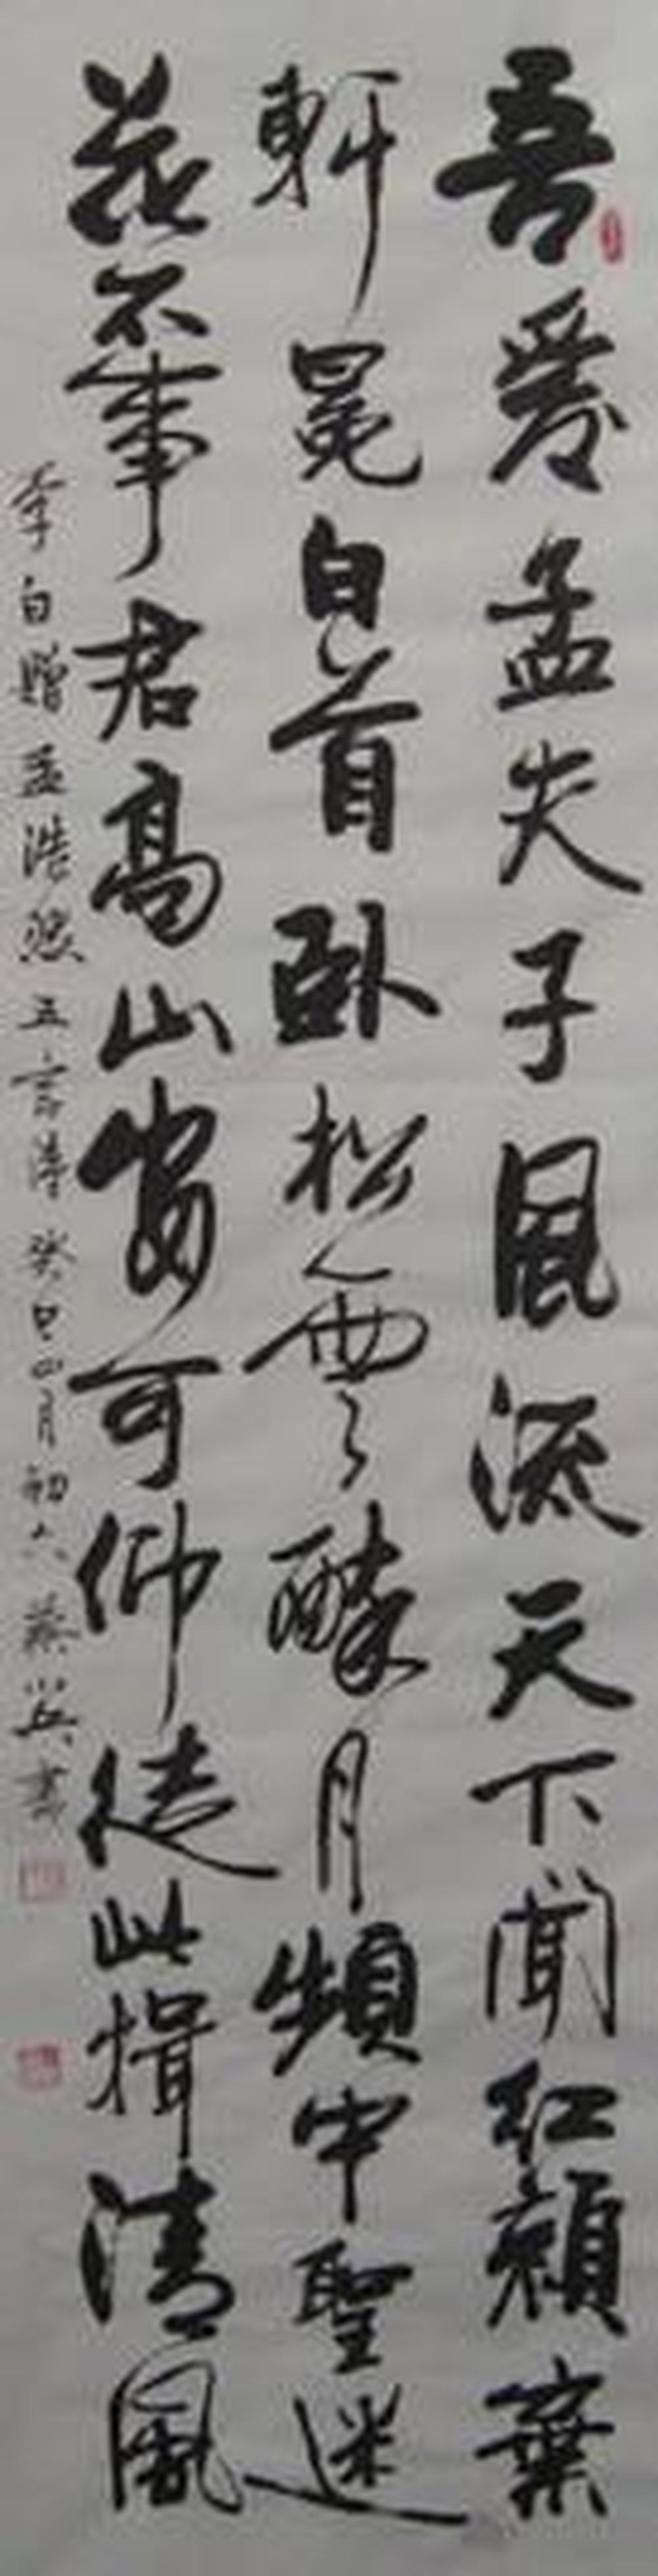 吾爱孟夫子風流天下聞紅顏棄
軒冕白首臥松雲醉月頻中聖迷
花不事君高山安可仰徒此揖清風
李白贈孟浩然五言詩癸巳四月初六蔡英書